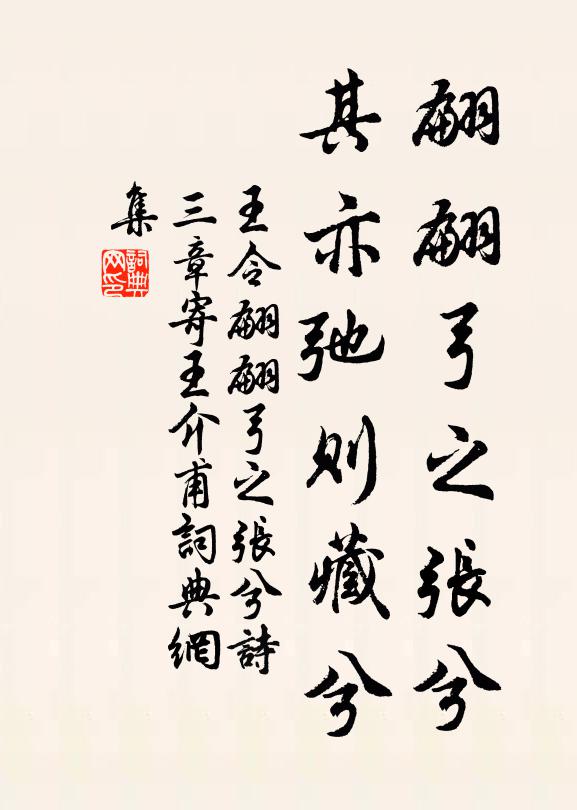 翩翩弓之張兮
其亦弛則藏兮
王令翩翩弓之張兮詩
三章寄王介甫詞典網
集
詞典網印